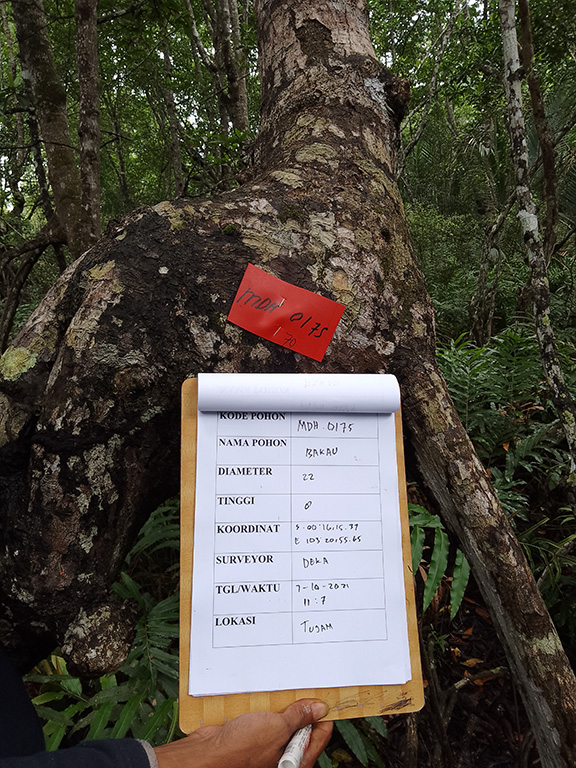 MDH 0175
170
KODE POHON MDH.0175
NAMA POHON BAKAU
DIAMETER 22
TINGGI 8
KOORDINAT S.00°16,15.79
E 103°20,55.65
SURVEYOR DEKA
TGL/WAKTU 7-10-2021
11:7
LOKASI TUJAM